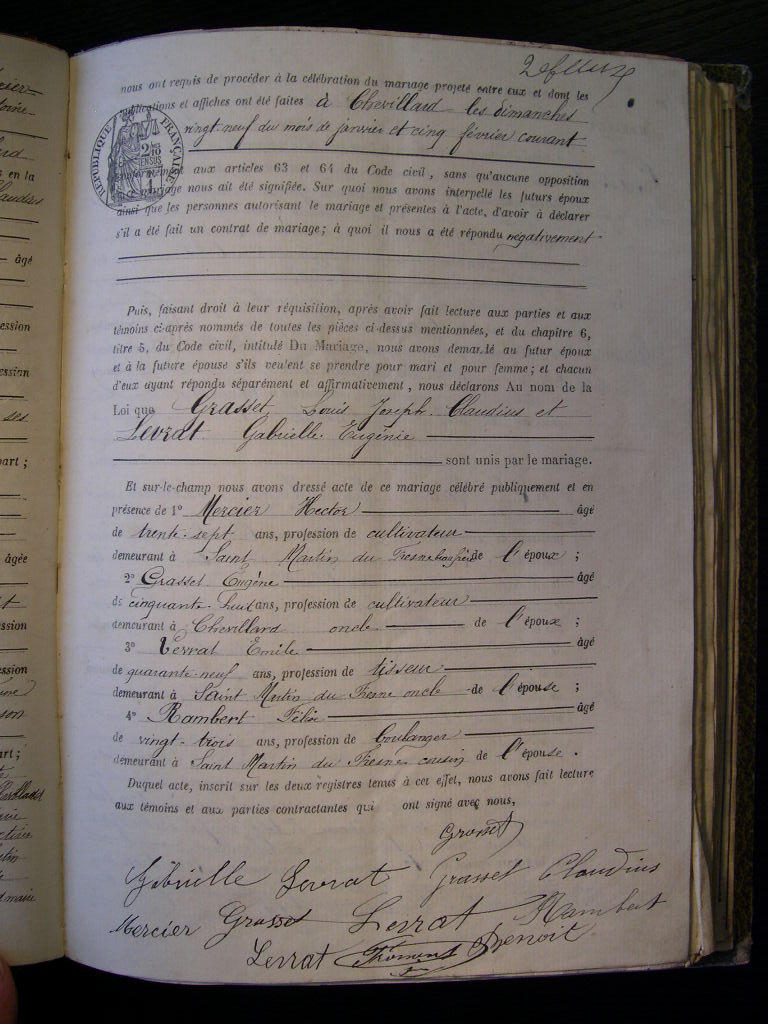 nous ont requis de procéder à la célébration du mariage projeté entre eux et dont les
publications et affiches ont été faites à Chevillard les dimanches
vingt-neuf du mois de janvier et cinq février courant
RÉPUBLIQUE FRANÇAISE
conformément aux articles 63 et 64 du Code civil, sans qu'aucune opposition
au mariage nous ait été signifiée. Sur quoi nous avons interpellé les futurs époux
ainsi que les personnes autorisant le mariage et présentes à l'acte, d'avoir à déclarer
s'il a été fait un contrat de mariage; à quoi il nous a été répondu négativement
Puis, faisant droit à leur réquisition, après avoir fait lecture aux parties et aux
témoins ci-après nommés de toutes les pièces ci-dessus mentionnées, et du chapitre 6,
titre 5, du Code civil, intitulé Du Mariage, nous avons demandé au futur époux
et à la future épouse s'ils veulent se prendre pour mari et pour femme; et chacun
d'eux ayant répondu séparément et affirmativement, nous déclarons Au nom de la
Loi que Grasset Louis Joseph Claudius et
Levrat Gabrielle Eugénie
sont unis par le mariage.
Et sur-le-champ nous avons dressé acte de ce mariage célébré publiquement et en
présence de 1° Mercier Hector âgé
de trente-sept ans, profession de cultivateur
demeurant à Saint Martin du Fresne beau frère de l'époux ;
2° Grasset Eugène âgé
de cinquante-huit ans, profession de cultivateur
demeurant à Chevillard oncle de l'époux ;
3° Levrat Emile âgé
de quarante-neuf ans, profession de tisseur
demeurant à Saint Martin du Fresne oncle de l'épouse ;
4° Rambert Félix âgé
de vingt-trois ans, profession de boulanger
demeurant à Saint Martin du Fresne cousin de l'épouse.
Duquel acte, inscrit sur les deux registres tenus à cet effet, nous avons fait lecture
aux témoins et aux parties contractantes qui ont signé avec nous,
Grasset
Gabrielle Levrat Grasset Claudius
Mercier Grasset Levrat Rambert
Levrat Benoit